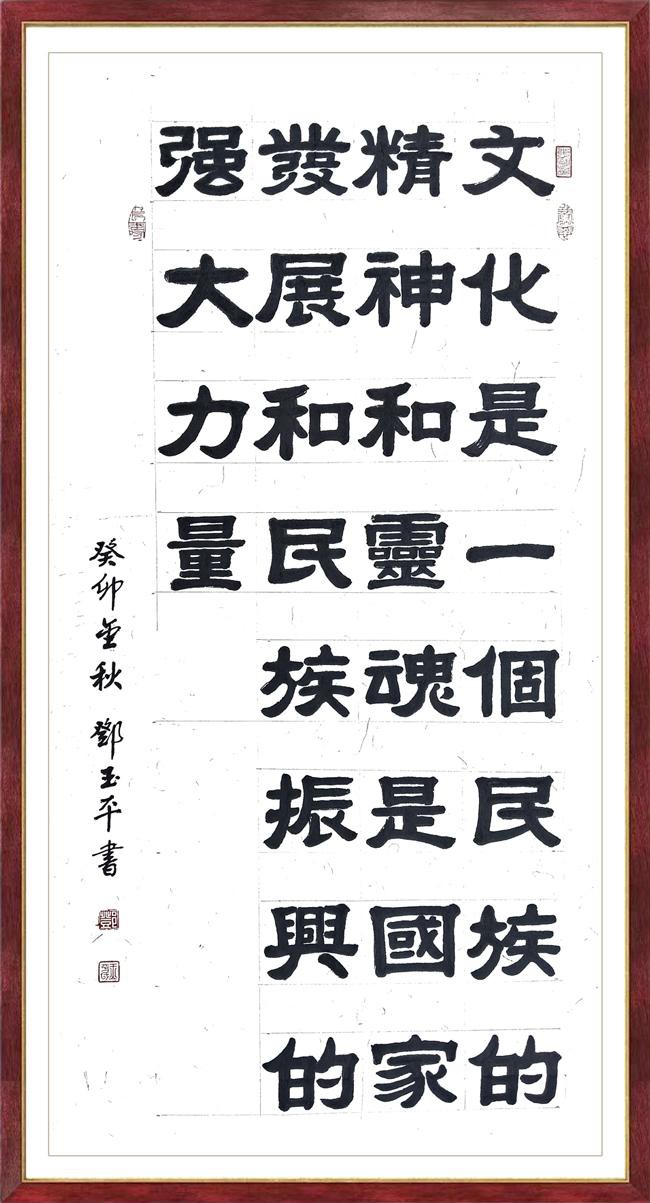 文化是一個民族的
精神和靈魂是國家
發展和民族振興的
强大力量
癸卯金秋 鄧玉平書